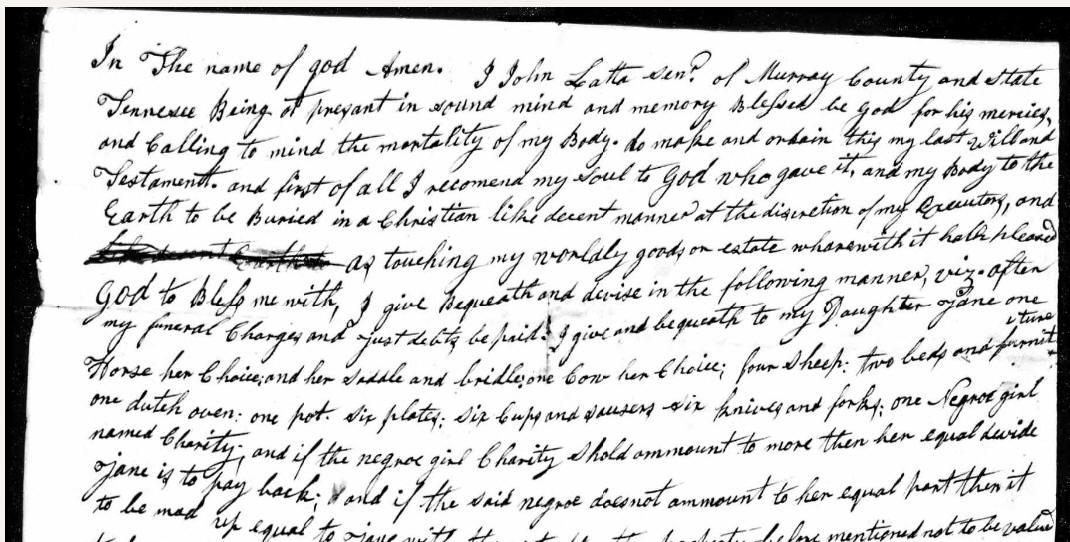 In The name of god Amen. I John Latta Senr. of Murray County and state
Tennesee Being at presant in sound mind and memory Blessed be God for his mercies,
and Calling to mind the mortality of my Body. do make and ordain this my last Will and
Testament. and first of all I recomend my Soul to God who gave it, and my Body to the
Earth to be Buried in a Christian like decent manner at the discretion of my Executors, and
as touching my worldly goods or estate wharewith it hath pleased
God to Bless me with, I give Bequeath and devise in the following manner, viz. after
my funeral Charges and just debts be paid. I give and bequeath to my Daughter Jane one
Horse her Choice; and her saddle and bridle; one Cow her Choice; four Sheep: two beds and furniture
one dutch oven: one pot. six plates: six Cups and sausers six knives and forks; one Negroe girl
named Charity; and if the negroe girl Charity shold ammount to more then her equal devide
Jane is to pay back; and if the said negroe doesnot ammount to her equal part then it
to be mad up equal to Jane with the
property before mentioned not to be value